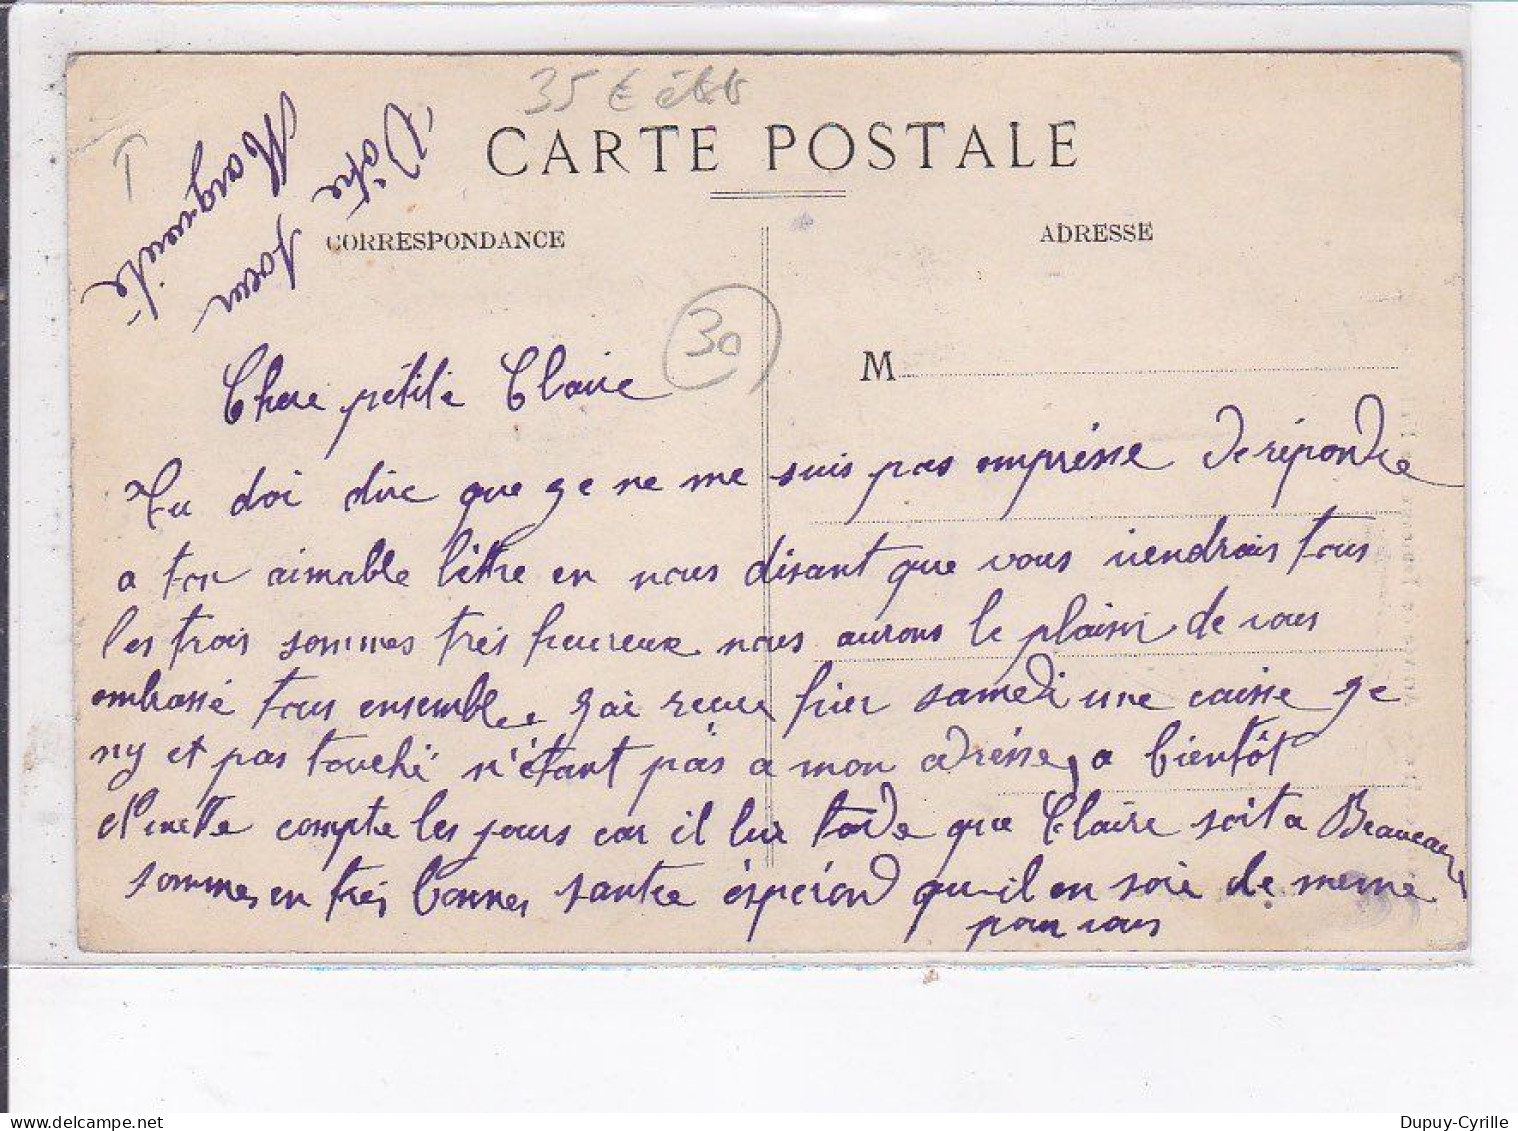 35 € ébb
CARTE POSTALE
CORRESPONDANCE
ADRESSE
Votre
soeur
Marguerite
T
30
M
Chere petite Claire
Tu doi dire que je ne me suis pas empresse de répondre
a ton aimable lettre en nous disant que vous viendrais tous
les trois sommes très heureux nous aurons le plaisir de vous
embrassé tous ensemble j'ai recue hier samedi une caisse je
ny et pas touché n'étant pas a mon adrésse, a bientôt
compte les jours car il lui tarde que Claire soit a Beaucaire
sommes en très bonnes santee éspérond qu-il en soie de meme
pour vous
delcampe.net
Dupuy-Cyrille